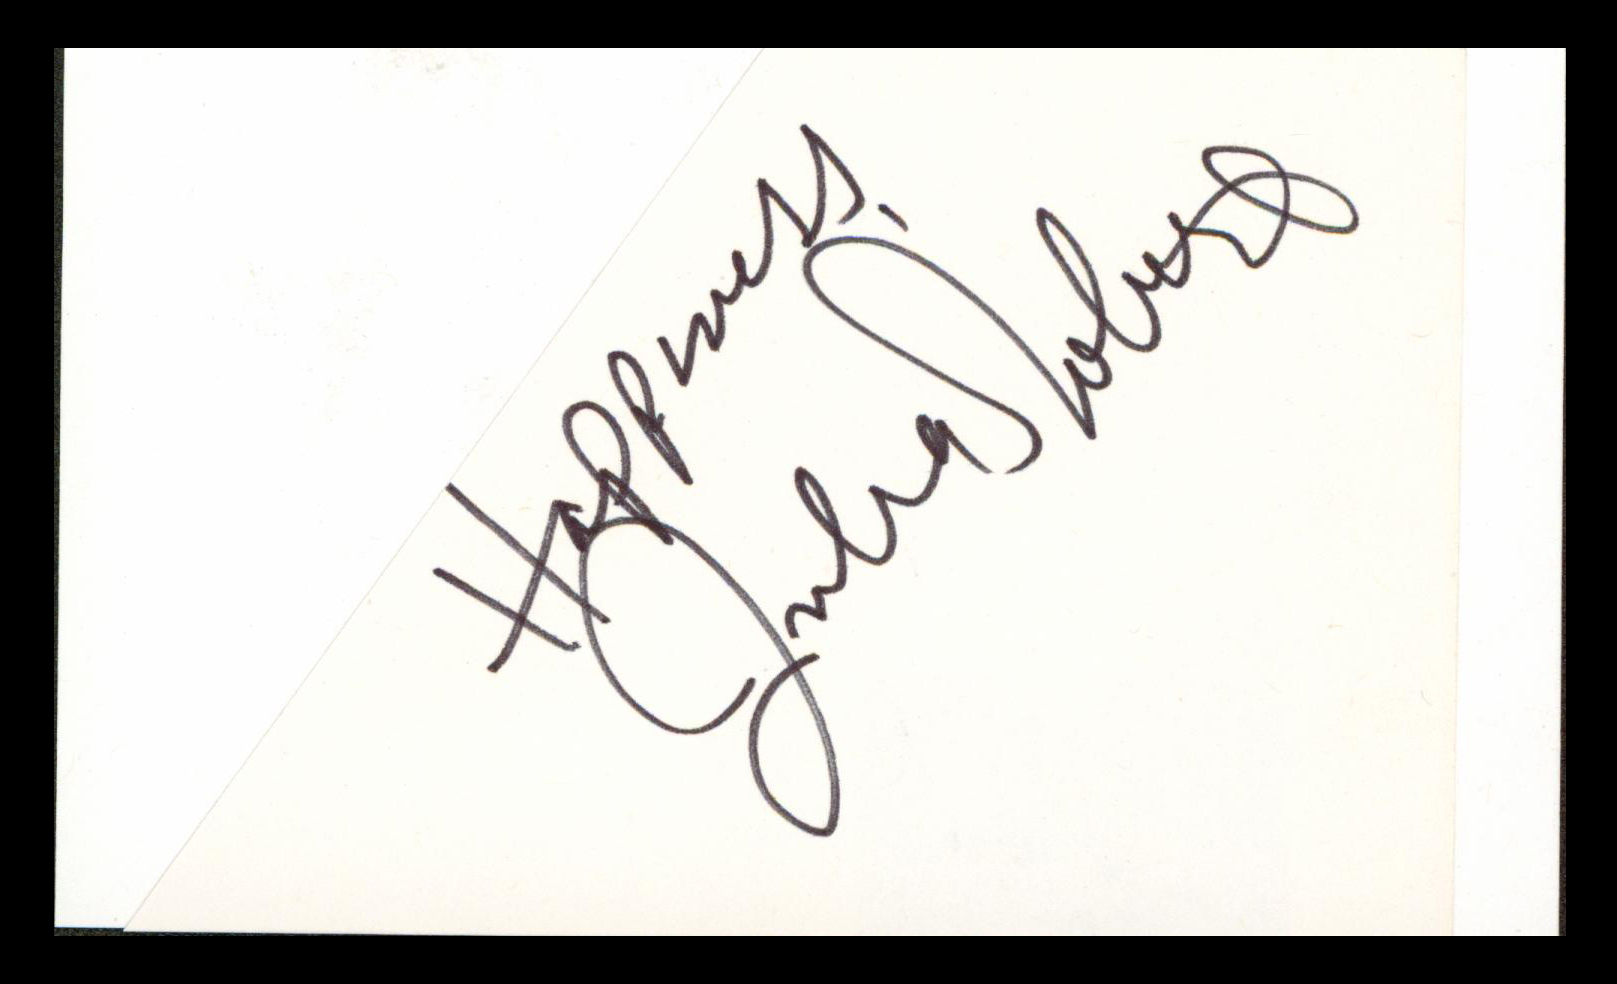 Happness,
Julia Roberts